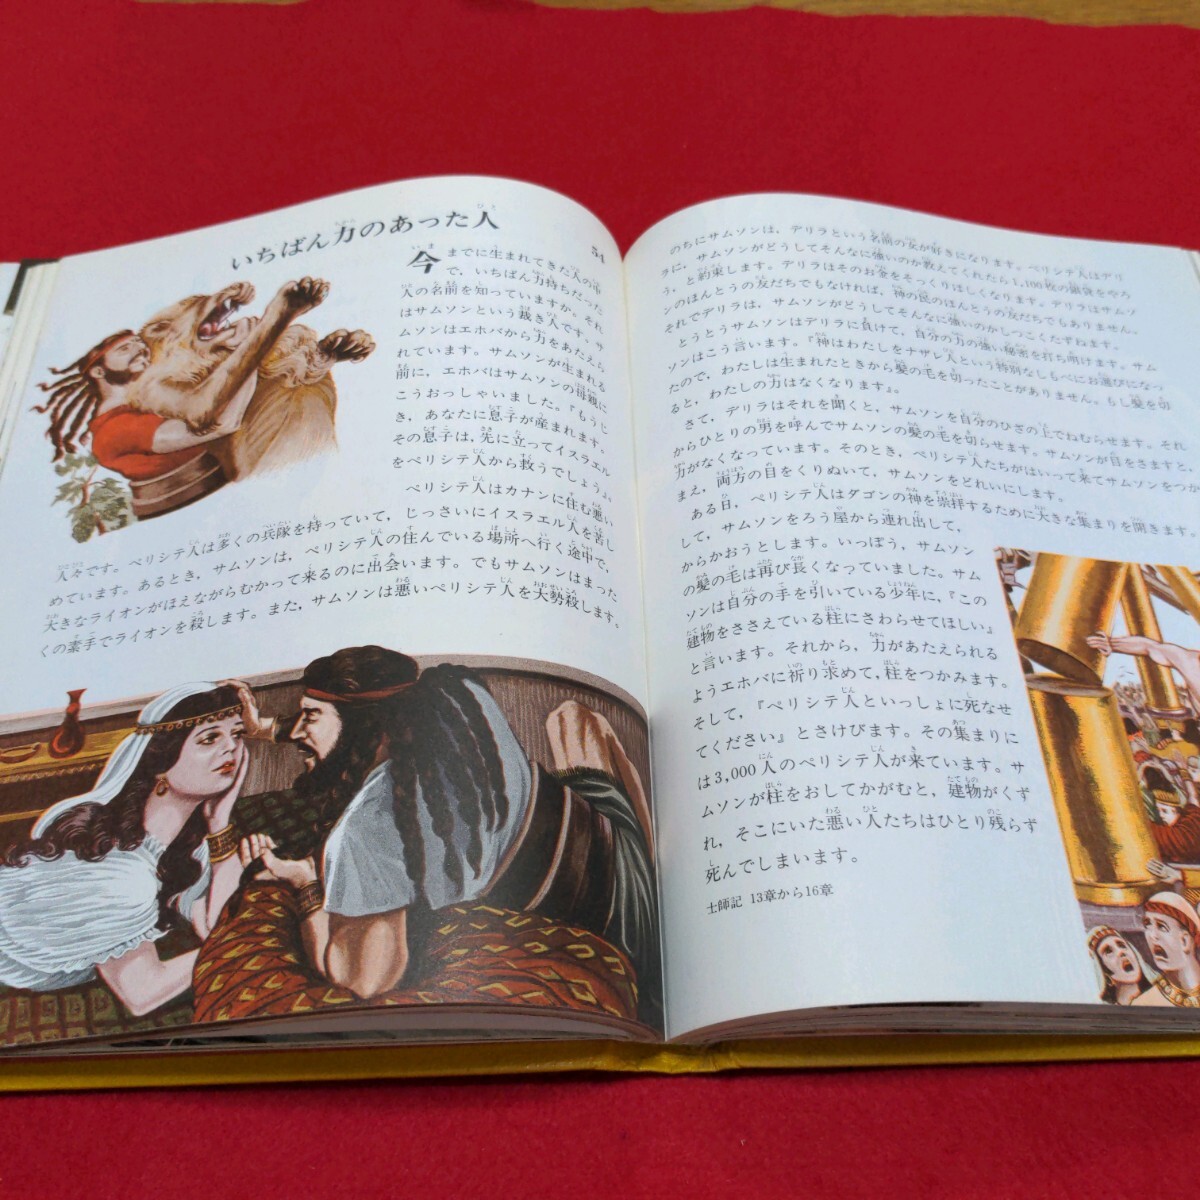 いちばん力のあった人
54
今までに生まれてきた人の中
で，いちばん力持ちだった
人の名前を知っていますか。それ
はサムソンという裁き人です。サ
ムソンはエホバから力をあたえら
れています。サムソンが生まれる
前に，エホバはサムソンの母親に
こうおっしゃいました。『もうじ
き，あなたに息子が産まれます。
その息子は，先に立ってイスラエル
をペリシテ人から救うでしょう』
ペリシテ人はカナンに住む悪い
人々です。ペリシテ人は多くの兵隊を持っていて，じっさいにイスラエル人を苦し
めています。あるとき，サムソンは，ペリシテ人の住んでいる場所へ行く途中で，
大きなライオンがほえながらむかって来るのに出会います。でもサムソンはまった
くの素手でライオンを殺します。また，サムソンは悪いペリシテ人を大勢殺します。
のちにサムソンは，デリラという名前の女が好きになります。ペリシテ人はデリ
ラに，サムソンがどうしてそんなに強いのか教えてくれたら1,100枚の銀貨をやろ
う，と約束します。デリラはそのお金をそっくりほしくなります。デリラはサムソ
ンのほんとうの友だちでもなければ，神の民のほんとうの友だちでもありません。
それでデリラは，サムソンがどうしてそんなに強いのかしつこくたずねます。
とうとうサムソンはデリラに負けて，自分の力の強い秘密を打ち明けます。サム
ソンはこう言います。『神はわたしをナザレ人という特別なしもべにお選びになっ
たので，わたしは生まれたときから髪の毛を切ったことがありません。もし髪を切
ると，わたしの力はなくなります』。
さて，デリラはそれを聞くと，サムソンを自分のひざの上でねむらせます。それ
からひとりの男を呼んでサムソンの髪の毛を切らせます。サムソンが目をさますと，
力がなくなっています。そのとき，ペリシテ人たちがはいって来てサムソンをつか
まえ，両方の目をくりぬいて，サムソンをどれいにします。
ある日，ペリシテ人はダゴンの神を崇拝するために大きな集まりを開きます。
して，サムソンをろう屋から連れ出して，
からかおうとします。いっぽう，サムソン
の髪の毛は再び長くなっていました。サム
ソンは自分の手を引いている少年に，『この
建物をささえている柱にさわらせてほしい』
と言います。それから，力があたえられる
ようエホバに祈り求めて，柱をつかみます。
そして，『ペリシテ人といっしょに死なせ
てください』とさけびます。その集まりに
は3,000人のペリシテ人が来ています。サ
ムソンが柱をおしてかがむと，建物がくず
れ，そこにいた悪い人たちはひとり残らず
死んでしまいます。
士師記 13章から16章